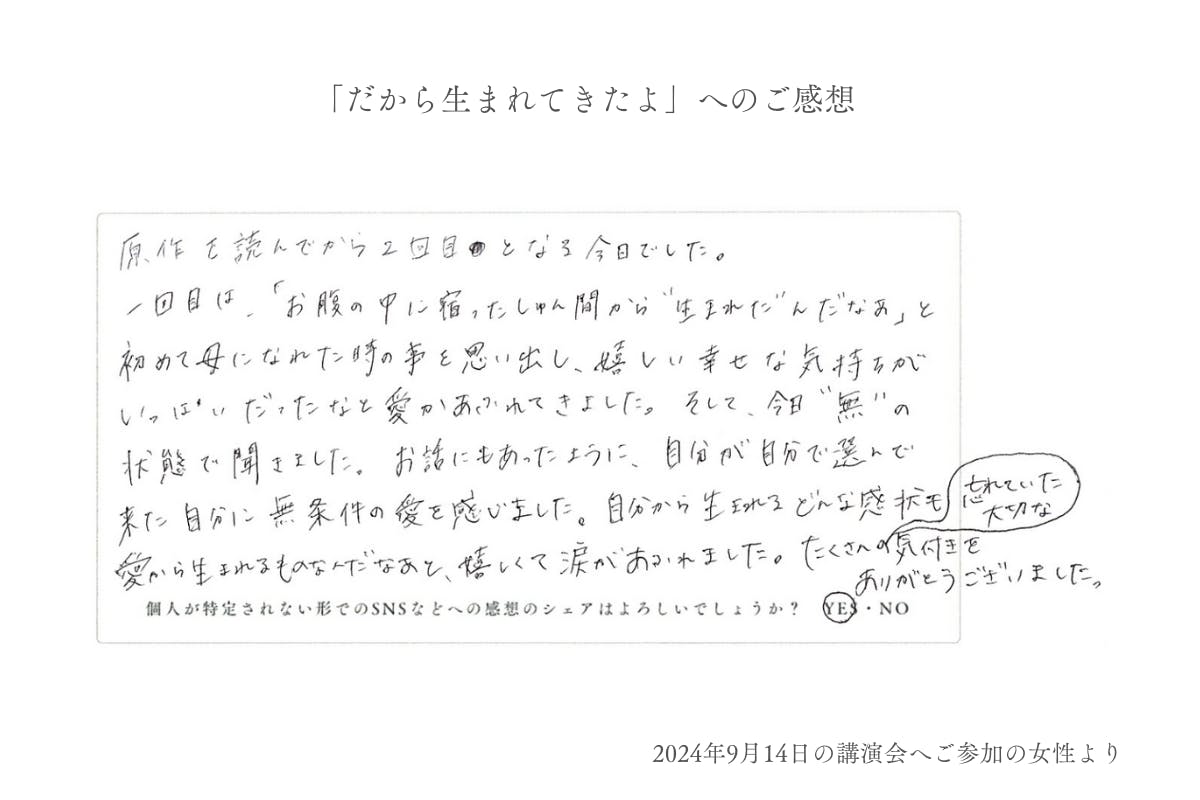 「だから生まれてきたよ」へのご感想
原作を読んでから2回目となる今日でした。
一回目は、「お腹の中に宿ったしゅん間から"生まれだ"んだなぁ」と
初めて母になれた時の事を思い出し、嬉しい幸せな気持ちが
いっぱいだったなと愛があふれてきました。そして、今日"無"の
状態で聞きました。お話にもあったように、自分が自分で選んで
来た自分に無条件の愛を感じました。自分から生まれるどんな感状も
愛から生まれるものなんだなあと、嬉しくて涙があふれました。たくさんの
忘れていた
大切な
気付きを
ありがとうございましたっ
個人が特定されない形でのSNSなどへの感想のシェアはよろしいでしょうか? YES・NO
2024年9月14日の講演会へご参加の女性より